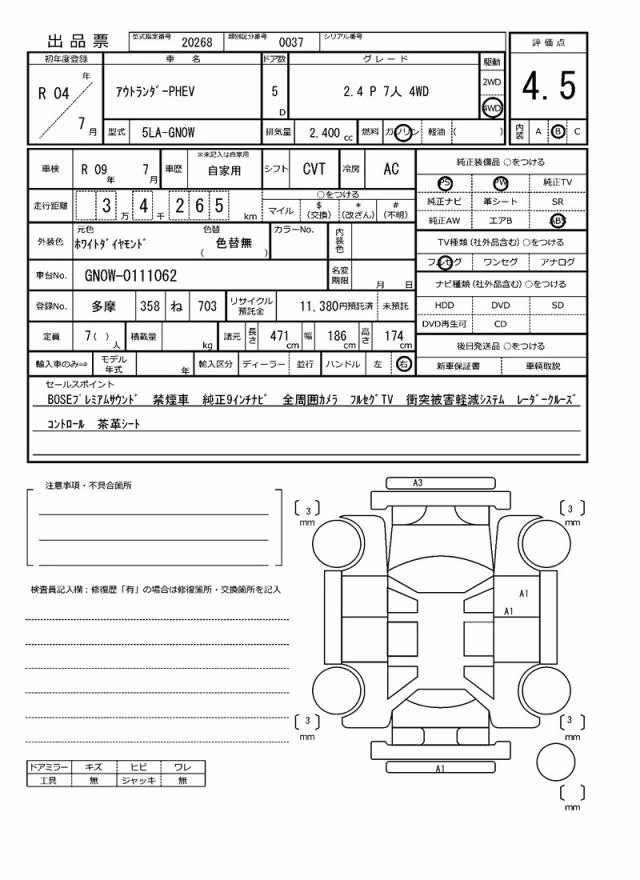 出品票 型式指定番号 20268 類別区分番号 0037 シリアル番号
評価点
4.5
内装 A B C
初年度登録 車名 ドア数 グレード 駆動
R 04 年 7 月
ｱｳﾄﾗﾝﾀﾞｰPHEV 5 D 2.4 P 7人 4WD 2WD 4WD
型式 5LA-GN0W 排気量 2,400 cc 燃料 ガソリン 軽油 ( )
車検 R 09 年 7 月 車歴 ※未記入は自家用 自家用 シフト CVT 冷房 AC
走行距離 3 万 4 千 2 6 5 km
○をつける
マイル $ (交換) * (改ざん) # (不明)
外装色 元色 ﾎﾜｲﾄﾀﾞｲﾔﾓﾝﾄﾞ 色替 ( 色替無 ) カラーNo. 内装色
車台No. GN0W-0111062 名変期限 月 日
登録No. 多摩 358 ね 703 リサイクル預託金 11,380円預託済 未預託
定員 7( ) 人 積載量 kg 諸元 長さ 471 cm 幅 186 cm 高さ 174 cm
輸入車のみ⇒ モデル年式 年 輸入区分 ディーラー 並行 ハンドル 左 右
純正装備品 ○をつける
PS PW 純正TV
純正ナビ 革シート SR
純正AW エアB ABS
TV種類 (社外品含む) ○をつける
フルセグ ワンセグ アナログ
ナビ種類 (社外品含む) ○をつける
HDD DVD SD
DVD再生可 CD
後日発送品 ○をつける
新車保証書 車輌取説
セールスポイント
BOSEﾌﾟﾚﾐｱﾑｻｳﾝﾄﾞ 禁煙車 純正9インチナビ 全周囲カメラ フルセグTV 衝突被害軽減システム レーダークルーズ
コントロール 茶革シート
注意事項・不具合箇所
検査員記入欄：修復歴「有」の場合は修復箇所・交換箇所を記入
ドアミラー キズ ヒビ ワレ
工具 無 ジャッキ 無
A3
[ 3 ] mm
[ 3 ] mm
A1
A1
[ 3 ] mm
[ 3 ] mm
A1
[ ] mm